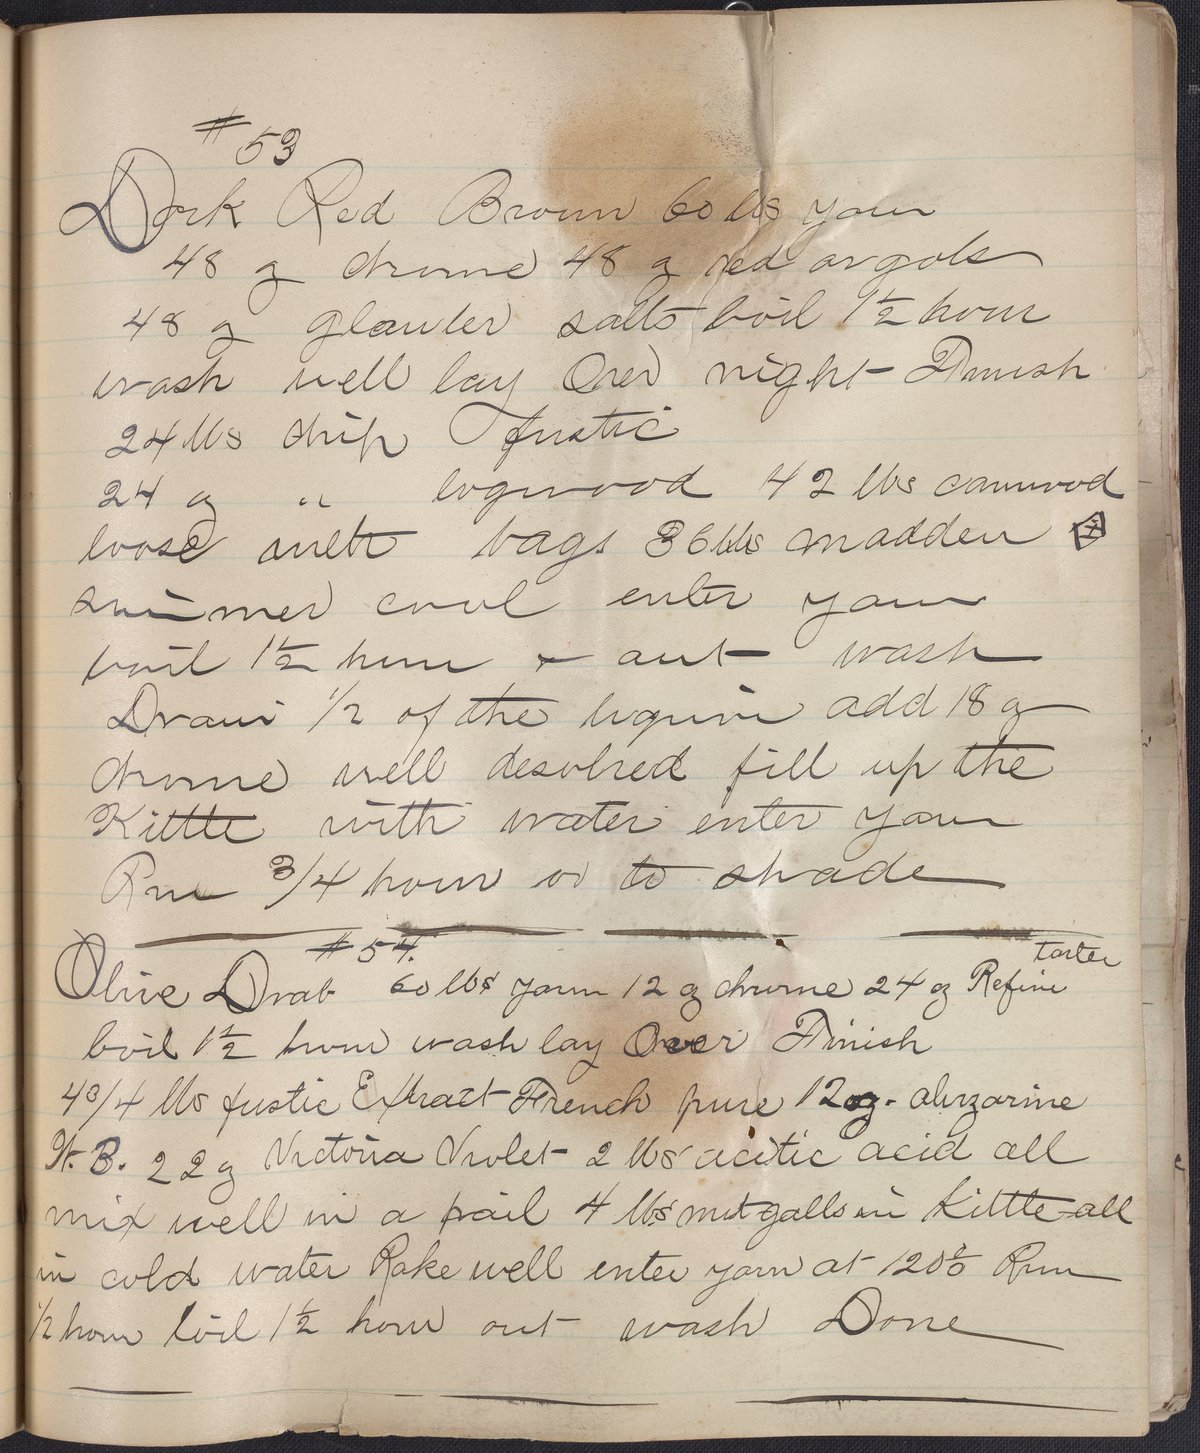 #53
Dark Red Brown 60 lbs yarn
48 oz chrome 48 oz red argols
48 oz glauber salts boil 1 1/2 hour
wash well lay Over night Finish
24 lbs chip fustic
24 oz " logwood 42 lbs camwood
loose with bags 36 lbs madder
simmer cool enter yarn
boil 1 1/2 hour & out wash
Draw 1/2 of the liquin add 18 oz
chrome well desolved fill up the
Kittle with water enter yarn
Run 3/4 hour or to shade
#54.
Olive Drab 60 lbs yarn 12 oz chrome 24 oz Refine tarter
boil 1 1/2 hour wash lay Over Finish
4 3/4 lbs fustic Extract French pure 12 oz. alirzarine
W. B. 22 oz Victoria Violet 2 lbs acitic acid all
mix well in a pail 4 lbs nutgalls in Kittle all
in cold water Rake well enter yarn at 120° Run
1/2 hour boil 1 1/2 hour out wash Done